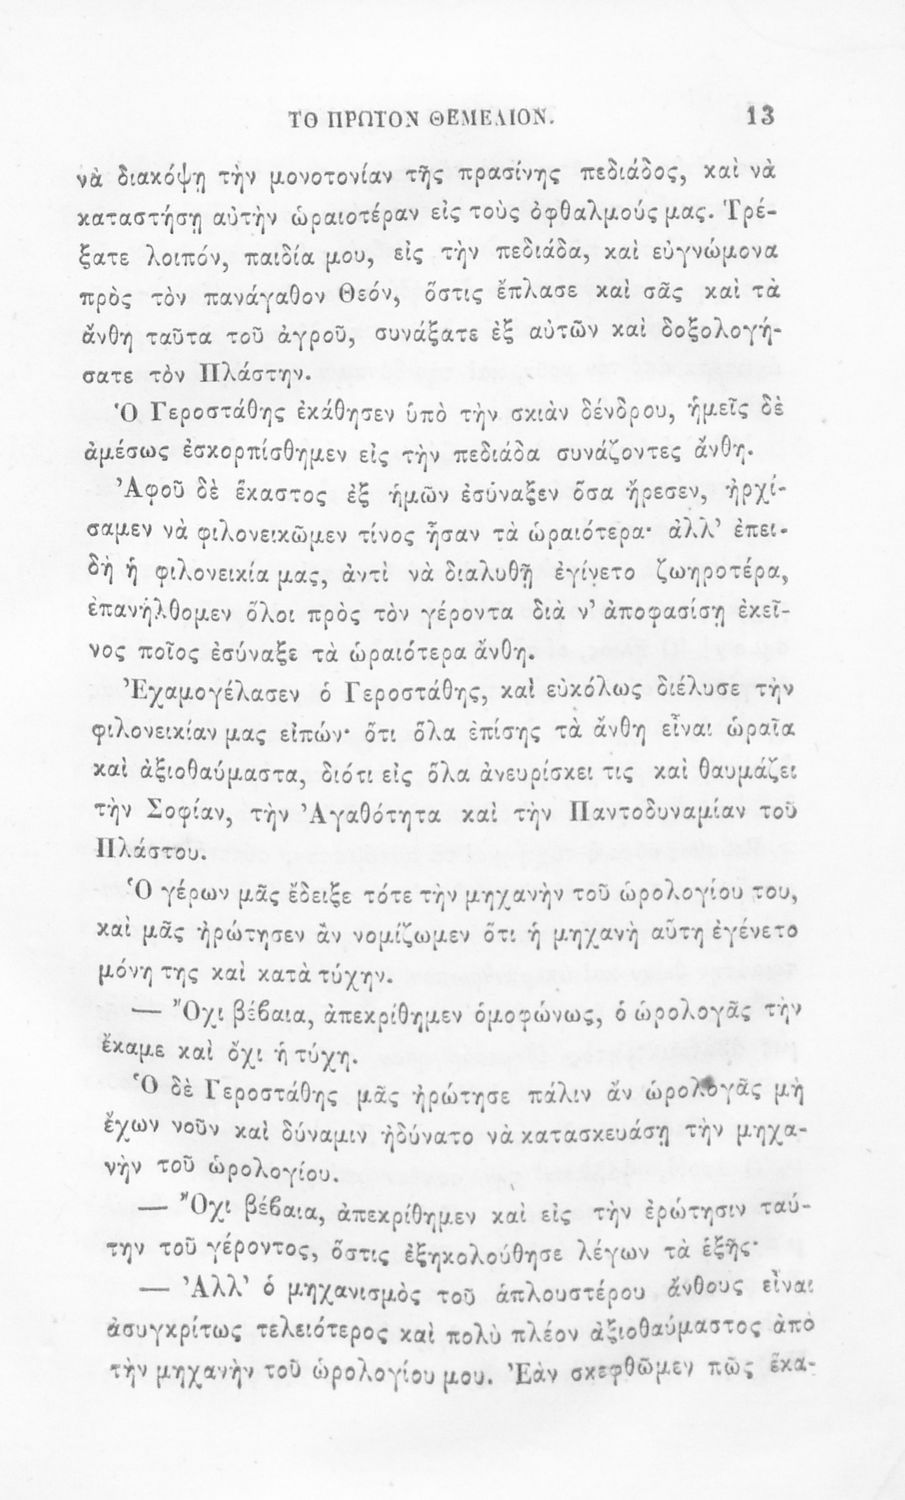 ΤΟ ΠΡΩΤΟΝ ΘΕΜΕΛΙΟΝ. 13
νὰ διακόψῃ τὴν μονοτονίαν τῆς πρασίνης πεδιάδος, καὶ νὰ
καταστήσῃ αὐτὴν ὡραιοτέραν εἰς τοὺς ὀφθαλμούς μας. Τρέ-
ξατε λοιπόν, παιδία μου, εἰς τὴν πεδιάδα, καὶ εὐγνώμονα
πρὸς τὸν πανάγαθον Θεόν, ὅστις ἔπλασε καὶ σᾶς καὶ τὰ
ἄνθη ταῦτα τοῦ ἀγροῦ, συνάξατε ἐξ αὐτῶν καὶ δοξολογή-
σατε τὸν Πλάστην.
Ὁ Γεροστάθης ἐκάθησεν ὑπὸ τὴν σκιὰν δένδρου, ἡμεῖς δὲ
ἀμέσως ἐσκορπίσθημεν εἰς τὴν πεδιάδα συνάζοντες ἄνθη.
Ἀφοῦ δὲ ἕκαστος ἐξ ἡμῶν ἐσύναξεν ὅσα ἤρεσεν, ἠρχί-
σαμεν νὰ φιλονεικῶμεν τίνος ἦσαν τὰ ὡραιότερα· ἀλλ’ ἐπει-
δὴ ἡ φιλονεικία μας, ἀντὶ νὰ διαλυθῇ ἐγίνετο ζωηροτέρα,
ἐπανήλθομεν ὅλοι πρὸς τὸν γέροντα διὰ ν’ ἀποφασίσῃ ἐκεῖ-
νος ποῖος ἐσύναξε τὰ ὡραιότερα ἄνθη.
Ἐχαμογέλασεν ὁ Γεροστάθης, καὶ εὐκόλως διέλυσε τὴν
φιλονεικίαν μας εἰπών· ὅτι ὅλα ἐπίσης τὰ ἄνθη εἶναι ὡραῖα
καὶ ἀξιοθαύμαστα, διότι εἰς ὅλα ἀνευρίσκει τις καὶ θαυμάζει
τὴν Σοφίαν, τὴν Ἀγαθότητα καὶ τὴν Παντοδυναμίαν τοῦ
Πλάστου.
Ὁ γέρων μᾶς ἔδειξε τότε τὴν μηχανὴν τοῦ ὡρολογίου του,
καὶ μᾶς ἠρώτησεν ἂν νομίζωμεν ὅτι ἡ μηχανὴ αὕτη ἐγένετο
μόνη της καὶ κατὰ τύχην.
— Ὄχι βέβαια, ἀπεκρίθημεν ὁμοφώνως, ὁ ὡρολογᾶς τὴν
ἔκαμε καὶ ὄχι ἡ τύχη.
Ὁ δὲ Γεροστάθης μᾶς ἠρώτησε πάλιν ἂν ὡρολογᾶς μὴ
ἔχων νοῦν καὶ δύναμιν ἠδύνατο νὰ κατασκευάσῃ τὴν μηχα-
νὴν τοῦ ὡρολογίου.
— Ὄχι βέβαια, ἀπεκρίθημεν καὶ εἰς τὴν ἐρώτησιν ταύ-
την τοῦ γέροντος, ὅστις ἐξηκολούθησε λέγων τὰ ἑξῆς·
— Ἀλλ’ ὁ μηχανισμὸς τοῦ ἁπλουστέρου ἄνθους εἶναι
ἀσυγκρίτως τελειότερος καὶ πολὺ πλέον ἀξιοθαύμαστος ἀπὸ
τὴν μηχανὴν τοῦ ὡρολογίου μου. Ἐὰν σκεφθῶμεν πῶς ἕκα-